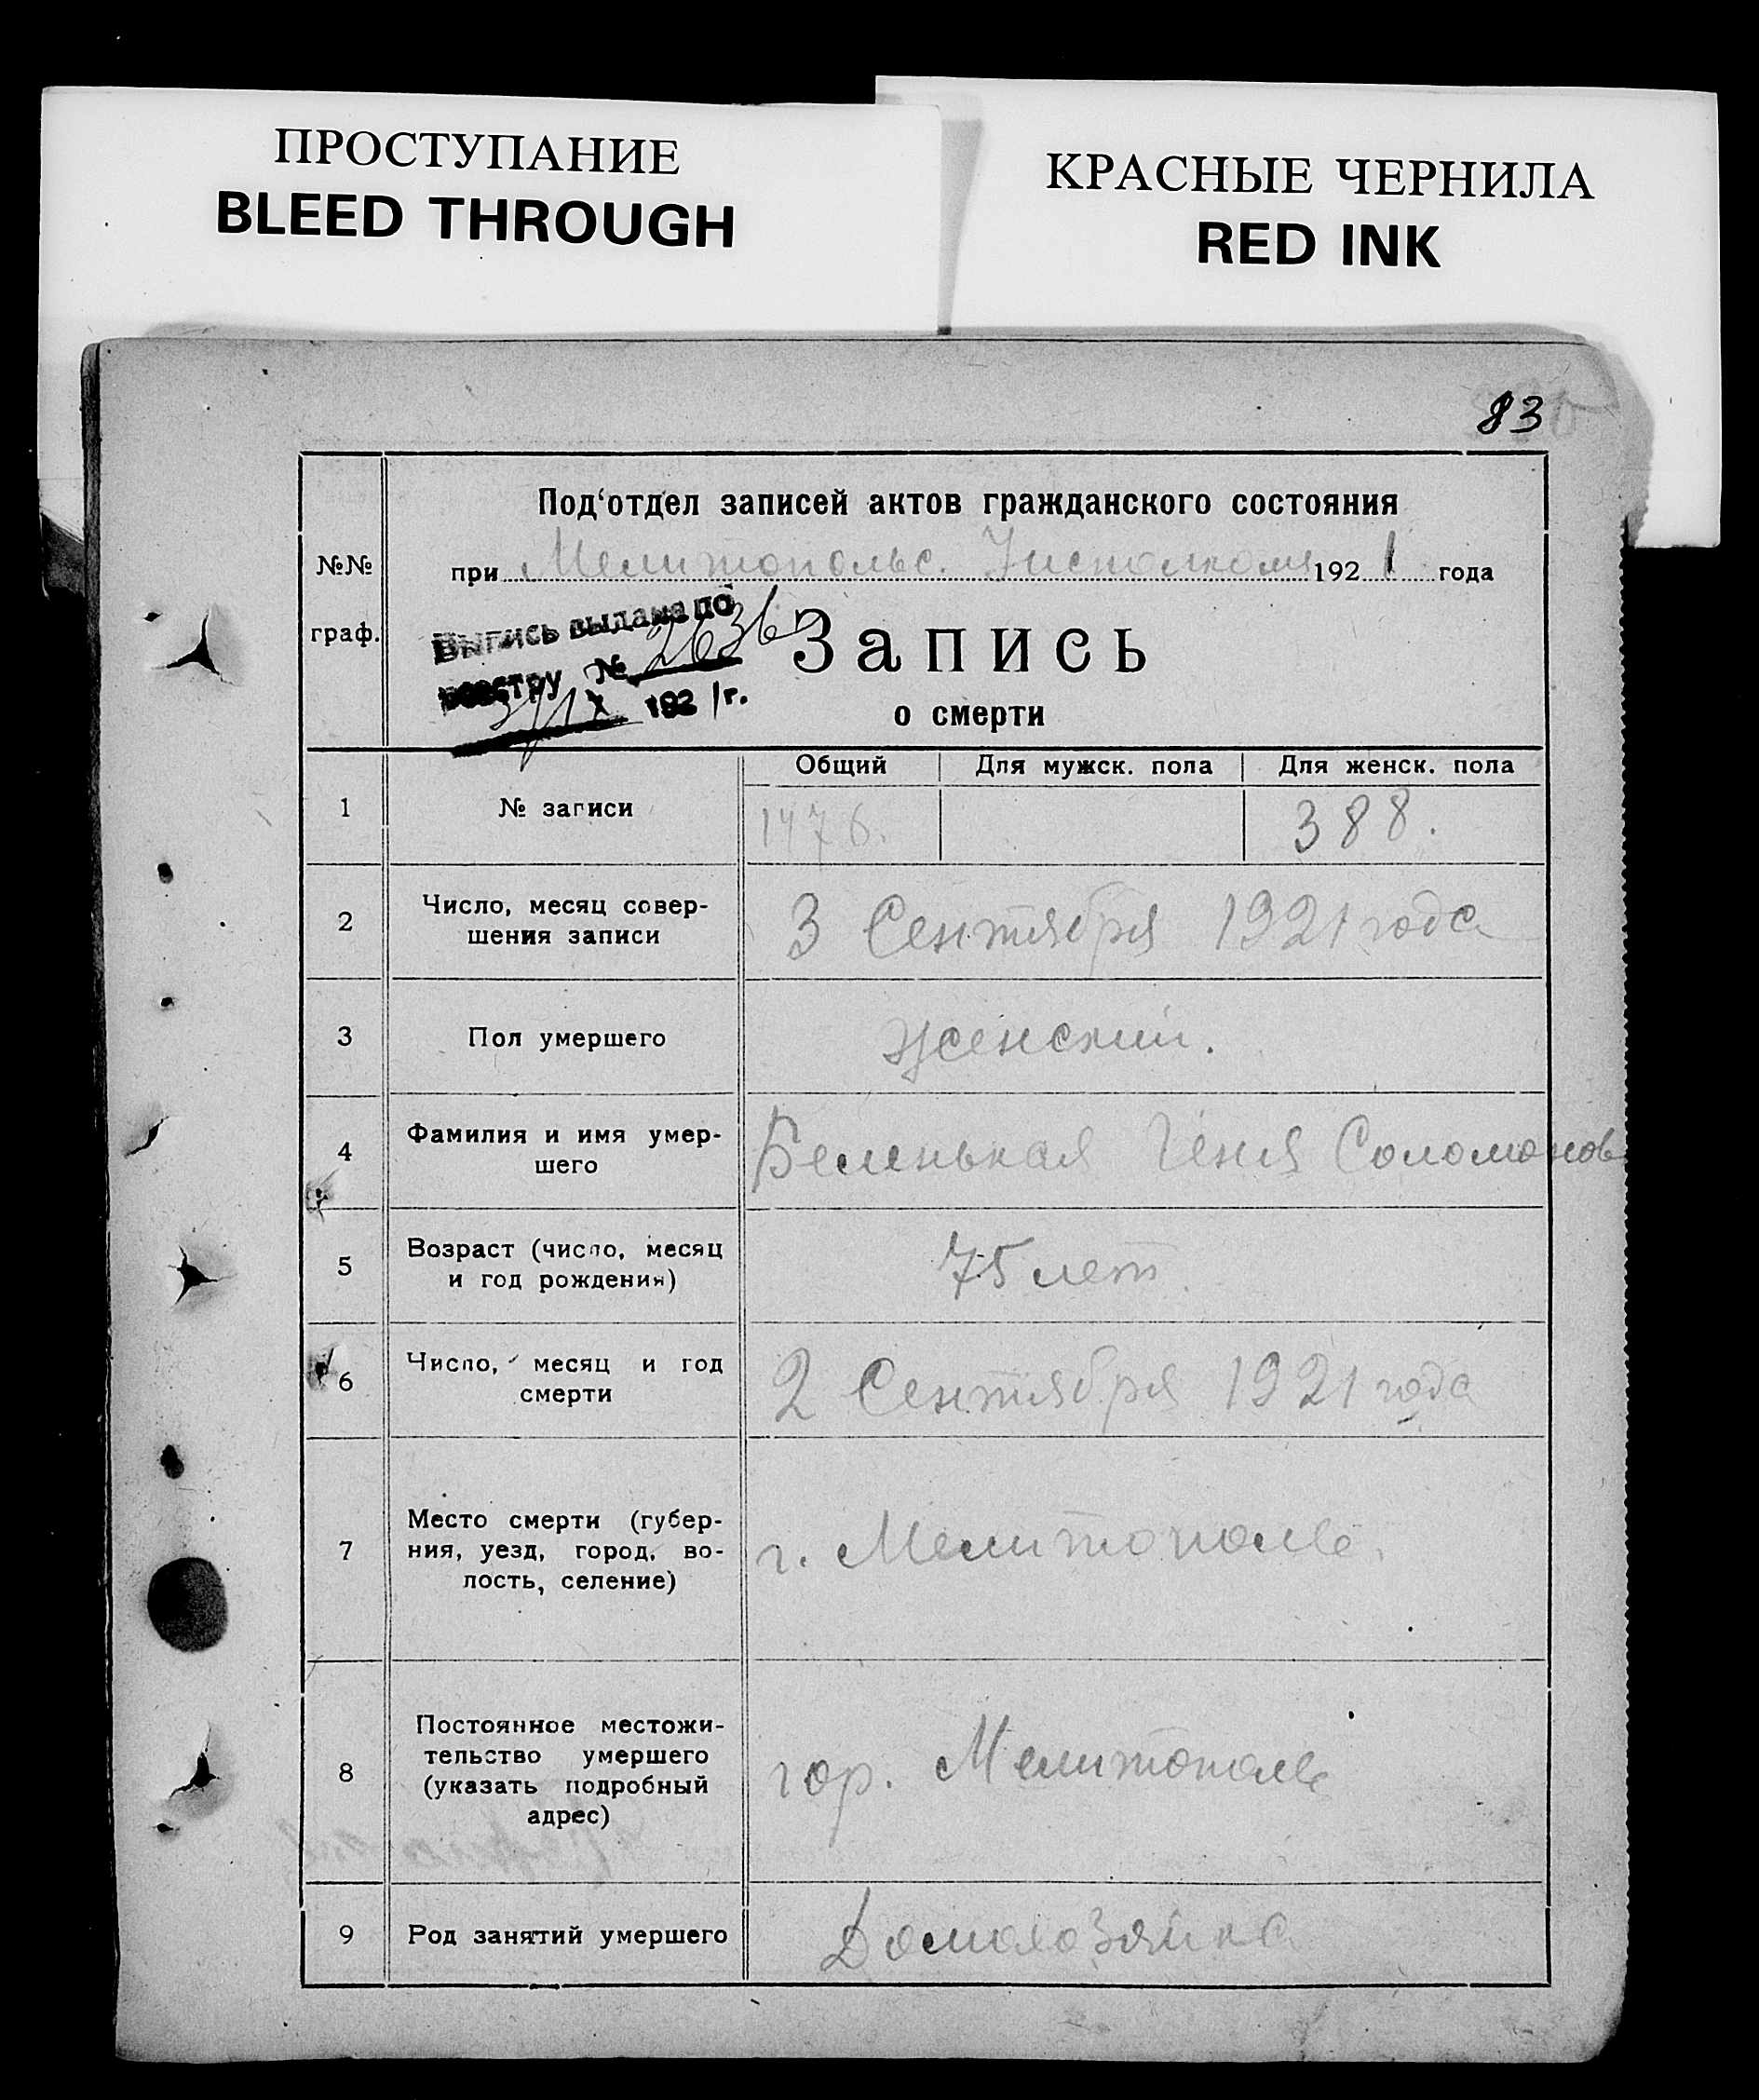 ПРОСТУПАНИЕ
BLEED THROUGH
КРАСНЫЕ ЧЕРНИЛА
RED INK
83
№№
граф.
Под‘отдел записей актов гражданского состояния
при Мелитопольс. 1921 года
Выпись выдана по
реестру № 2636
3/IX 1921 г.
Запись
о смерти
Общий Для мужск. пола Для женск. пола
1 № записи 1476. 388.
2 Число, месяц совер-
шения записи
3 Сентября 1921 года
3 Пол умершего женский.
4 Фамилия и имя умер-
шего
Беленькая Геня Соломонов
5 Возраст (число, месяц
и год рождения)
75 лет
6 Число, месяц и год
смерти
2 Сентября 1921 года
7 Место смерти (губер-
ния, уезд, город, во-
лость, селение)
г. Мелитополь.
8 Постоянное местожи-
тельство умершего
(указать подробный
адрес)
гор. Мелитополь
9 Род занятий умершего Домохозяйка